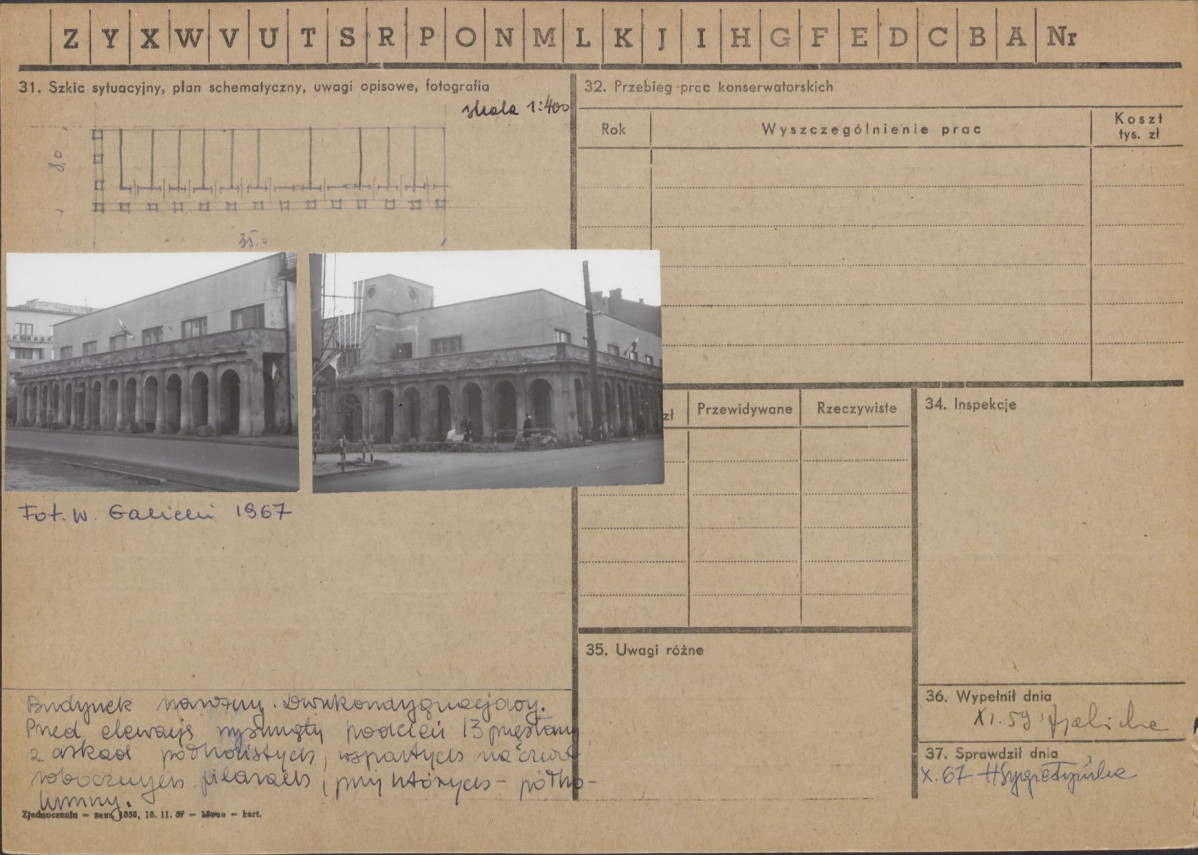 Z Y X W V U T S R P O N M L K J I H G F E D C B A Nr
31. Szkic sytuacyjny, plan schematyczny, uwagi opisowe, fotografia
skala 1:400
8,0
35,0
Fot. W. Galicki 1967
Budynek narożny. Dwukondygnacyjowy.
Przed elewację wysunięty podcień 13 przęsłowy
z arkad półkolistych, wspartych na czwo-
robocznych filarach, przy których – półko-
lumny.
Zjednoczenie — zam. 1358, 18. 11. 57 — — kart.
32. Przebieg prac konserwatorskich
Rok Wyszczególnienie prac Koszt
tys. zł
zł Przewidywane Rzeczywiste
34. Inspekcje
35. Uwagi różne
36. Wypełnił dnia
XI. 59
37. Sprawdził dnia
X. 67